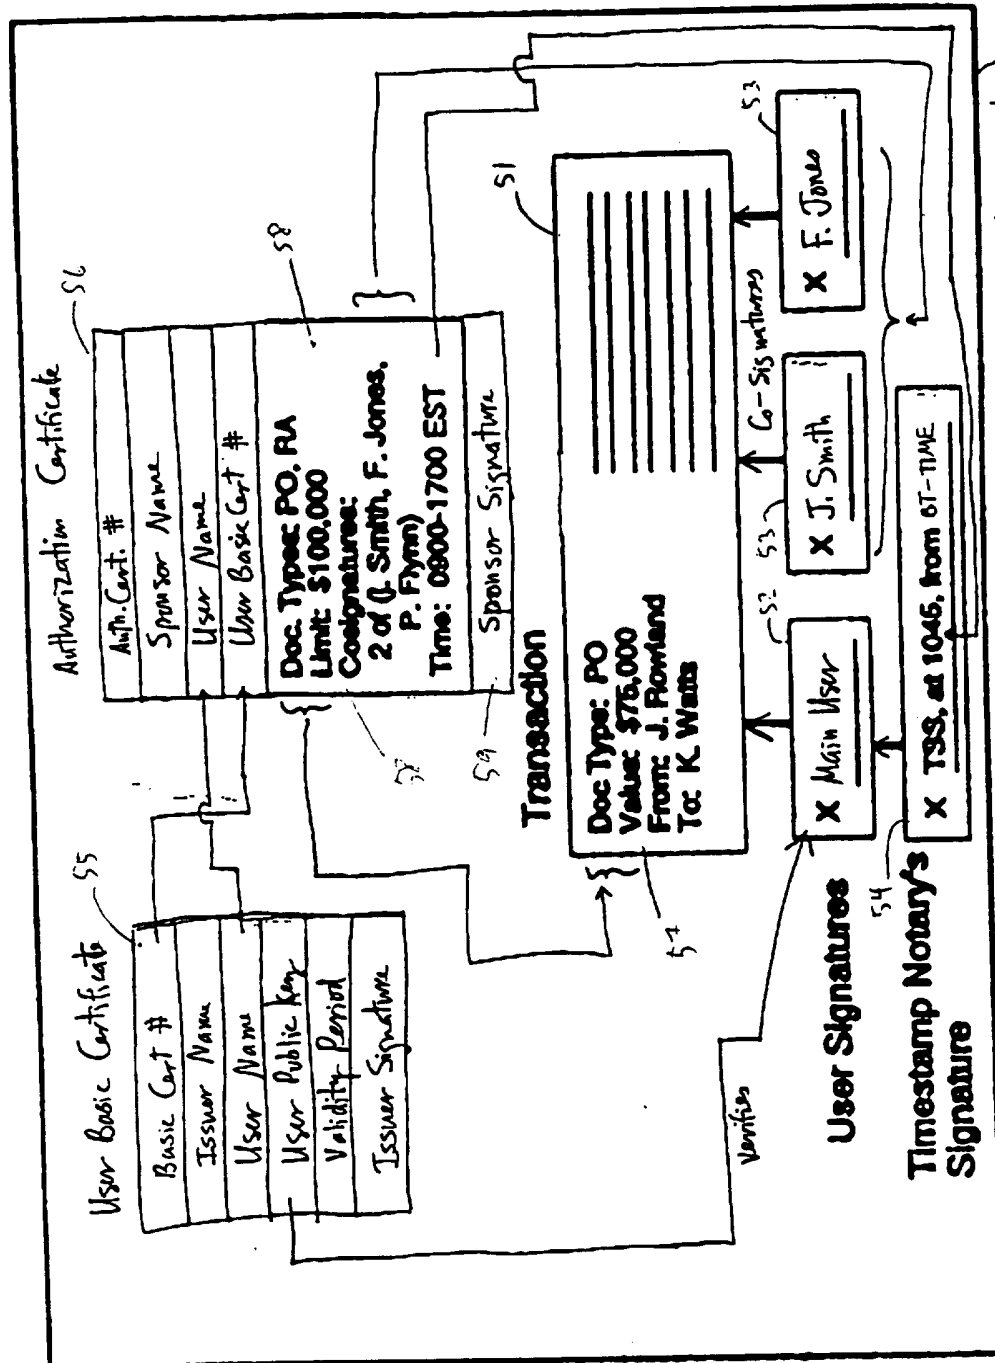 User Basic Certificate
55
Basic Cert #
Issuer Name
User Name
User Public Key
Validity Period
Issuer Signature
Authorization Certificate
56
Auth. Cert. #
Sponsor Name
User Name
User Basic Cert #
Doc. Types: PO, RA
Limit: $100,000
Cosignatures:
2 of (J. Smith, F. Jones,
P. Flynn)
Time: 0900-1700 EST
58
58
Sponsor Signature
59
Transaction
51
Doc Type: PO
Value: $75,000
From: J. Rowland
To: K. Watts
57
Verifies
Co-Signatures
User Signatures
52
X Main User
53
X J. Smith
53
X F. Jones
Timestamp Notary's
Signature
54
X TSS, at 1045, from BT-TIME